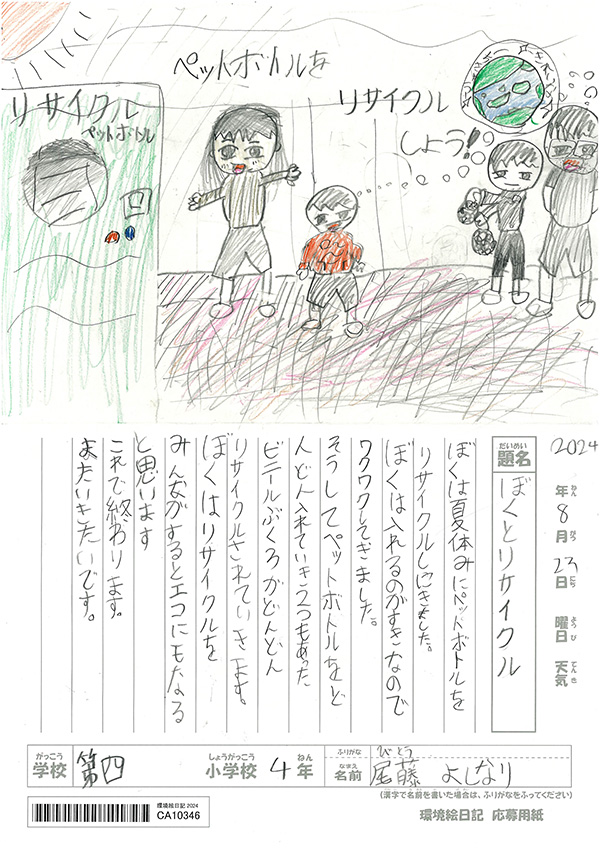 ペットボトルを
リサイクル
しよう!!
リサイクル
ペットボトル
回
2024年8月23日 曜日 天気
ねん がつ にち ようび てんき
だいめい
題名 ぼくとリサイクル
ぼくは夏休みにペットボトルを
リサイクルしにきました。
ぼくは入れるのがすきなので
ワクワクしてきました。
そうしてペットボトルをど
んどん入れていき2つもあった
ビニールぶくろがどんどん
リサイクルされていきます。
ぼくはリサイクルを
みんながするとエコにもなる
と思います
これで終わります。
またいきたいです。
がっこう しょうがっこう ねん ふりがな びとう
学校 第四 小学校 4年 なまえ 名前 尾藤 よしなり
(漢字で名前を書いた場合は、ふりがなをふってください)
環境絵日記 2024
CA10346
環境絵日記 応募用紙